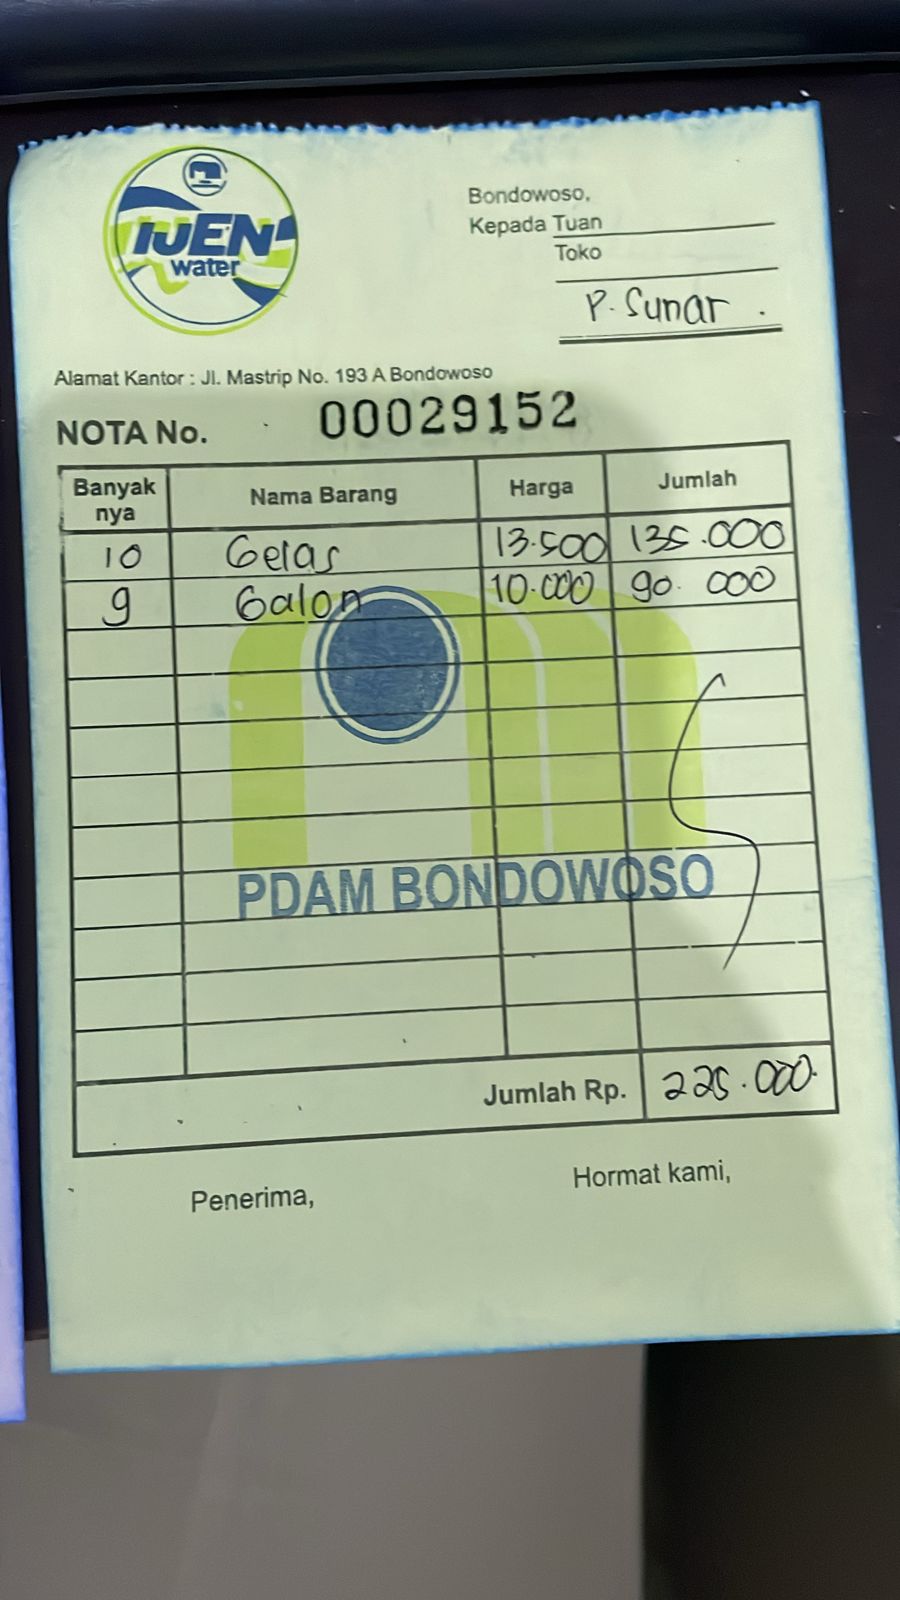 IJEN
water
Bondowoso,
Kepada Tuan
Toko
P. Sunar .
Alamat Kantor : Jl. Mastrip No. 193 A Bondowoso
NOTA No. 00029152
Banyak nya Nama Barang Harga Jumlah
10 Gelas 13.500 135.000
9 Galon 10.000 90.000
PDAM BONDOWOSO
Jumlah Rp. 225.000
Penerima, Hormat kami,